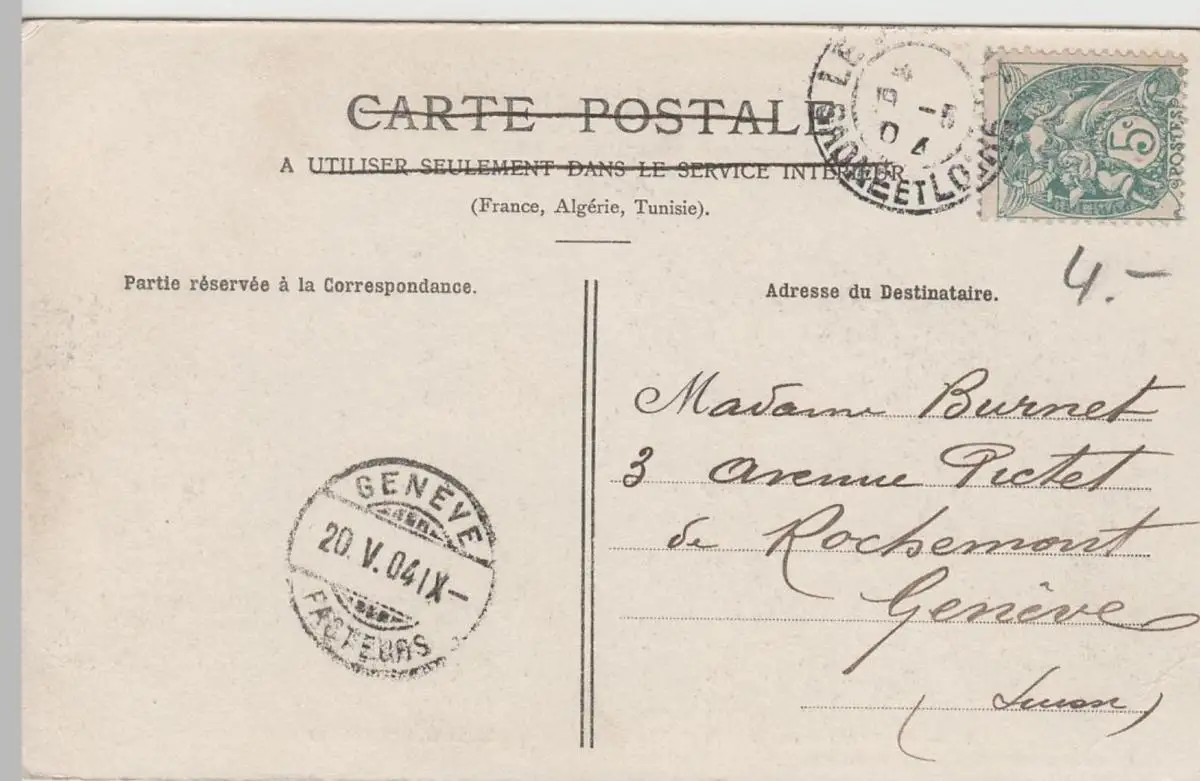 CARTE POSTALE
A UTILISER SEULEMENT DANS LE SERVICE INTÉRIEUR
(France, Algérie, Tunisie).
LE
SAONE ET LOIRE
5c
POSTES
4.-
Partie réservée à la Correspondance.
Adresse du Destinataire.
Madame Burnet
3 avenue Pictet
de Rochemont
Genève
(Suisse)
GENÈVE
20.V.04 IX-
FACTEURS